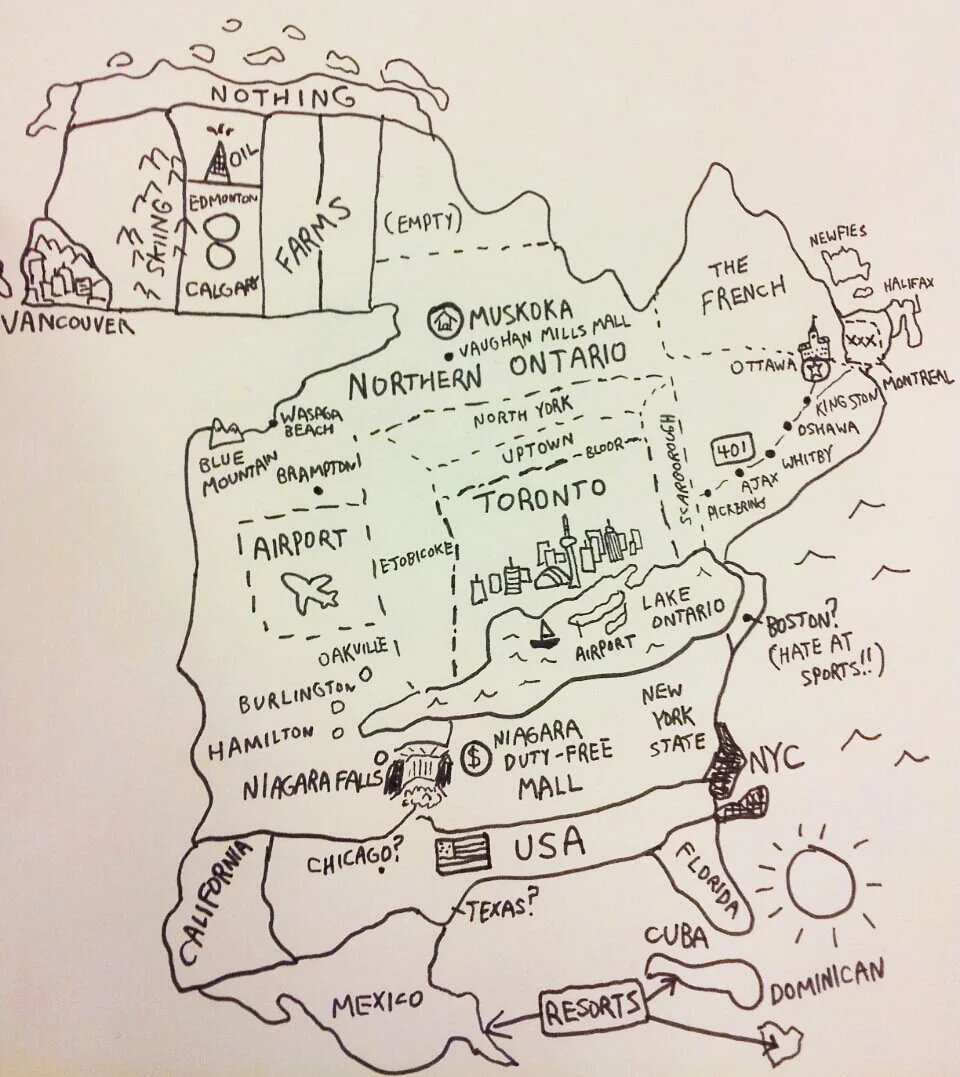 NOTHING
OIL
EDMONTON
CALGARY
SKIING
FARMS
(EMPTY)
VANCOUVER
THE
FRENCH
NEWFIES
HALIFAX
XXX
MONTREAL
OTTAWA
KINGSTON
OSHAWA
WHITBY
401
AJAX
PICKERING
MUSKOKA
VAUGHAN MILLS MALL
NORTHERN ONTARIO
WASAGA
BEACH
BLUE
MOUNTAIN
BRAMPTON
NORTH YORK
UPTOWN
BLOOR
SCARBOROUGH
TORONTO
AIRPORT
ETOBICOKE
LAKE
ONTARIO
AIRPORT
OAKVILLE
BURLINGTON
HAMILTON
NIAGARA FALLS
$
NIAGARA
DUTY-FREE
MALL
NEW
YORK
STATE
BOSTON?
(HATE AT
SPORTS!!)
NYC
CALIFORNIA
CHICAGO?
USA
FLORIDA
TEXAS?
MEXICO
RESORTS
CUBA
DOMINICAN